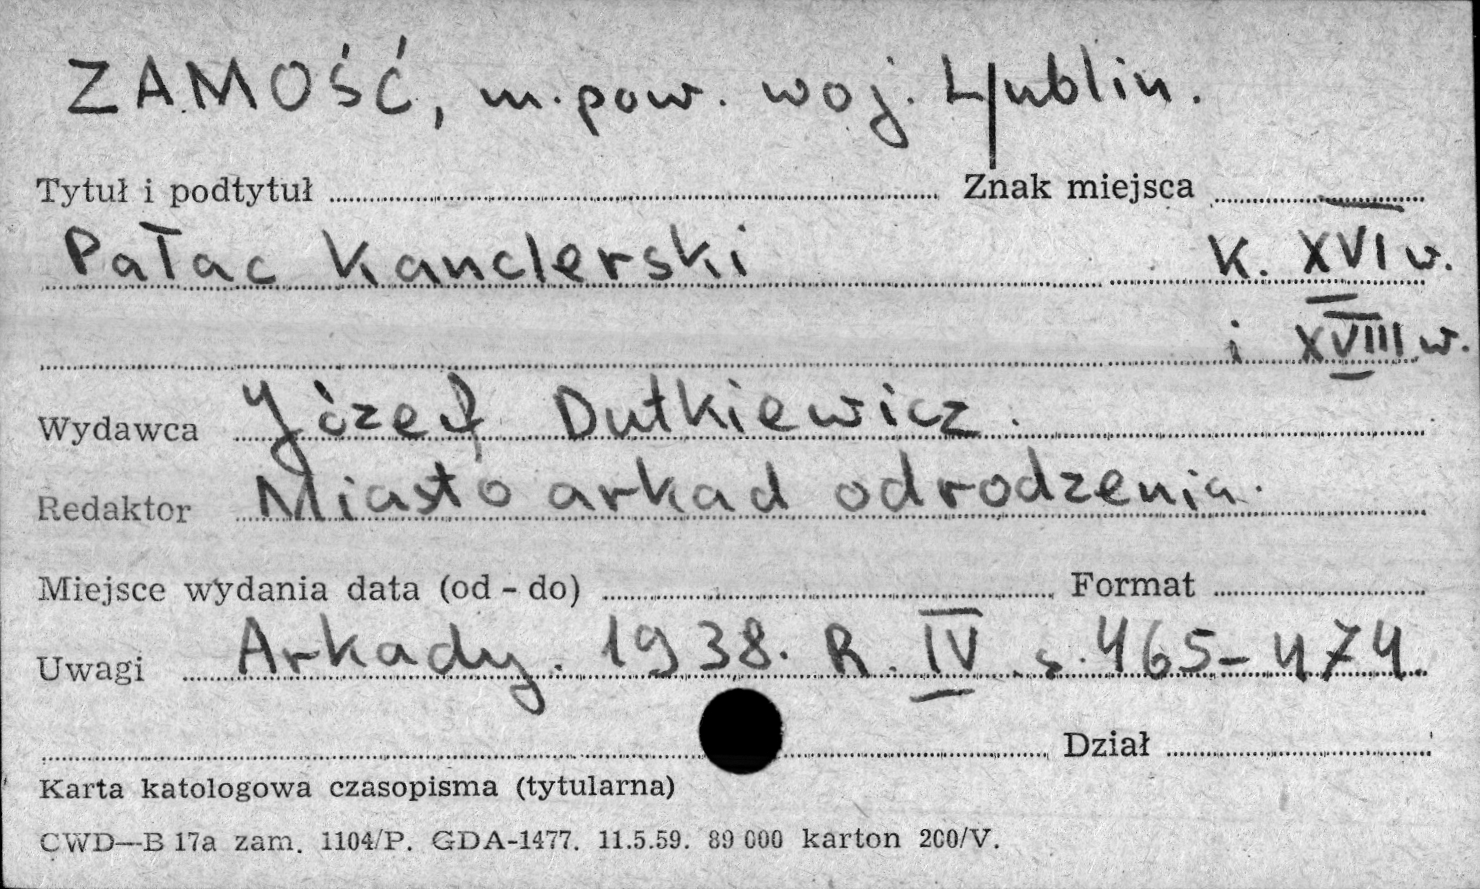 ZAMOŚĆ, m. pow. woj. Lublin.
Tytuł i podtytuł Znak miejsca
Pałac Kanclerski K. XVI w.
i XVIII w.
Wydawca Józef Dutkiewicz.
Redaktor Miasto arkad odrodzenia.
Miejsce wydania data (od - do) Format
Uwagi Arkady. 1938. R. IV s. 465-474.
Dział
Karta katologowa czasopisma (tytularna)
CWD—B 17a zam. 1104/P. GDA-1477. 11.5.59. 89 000 karton 200/V.